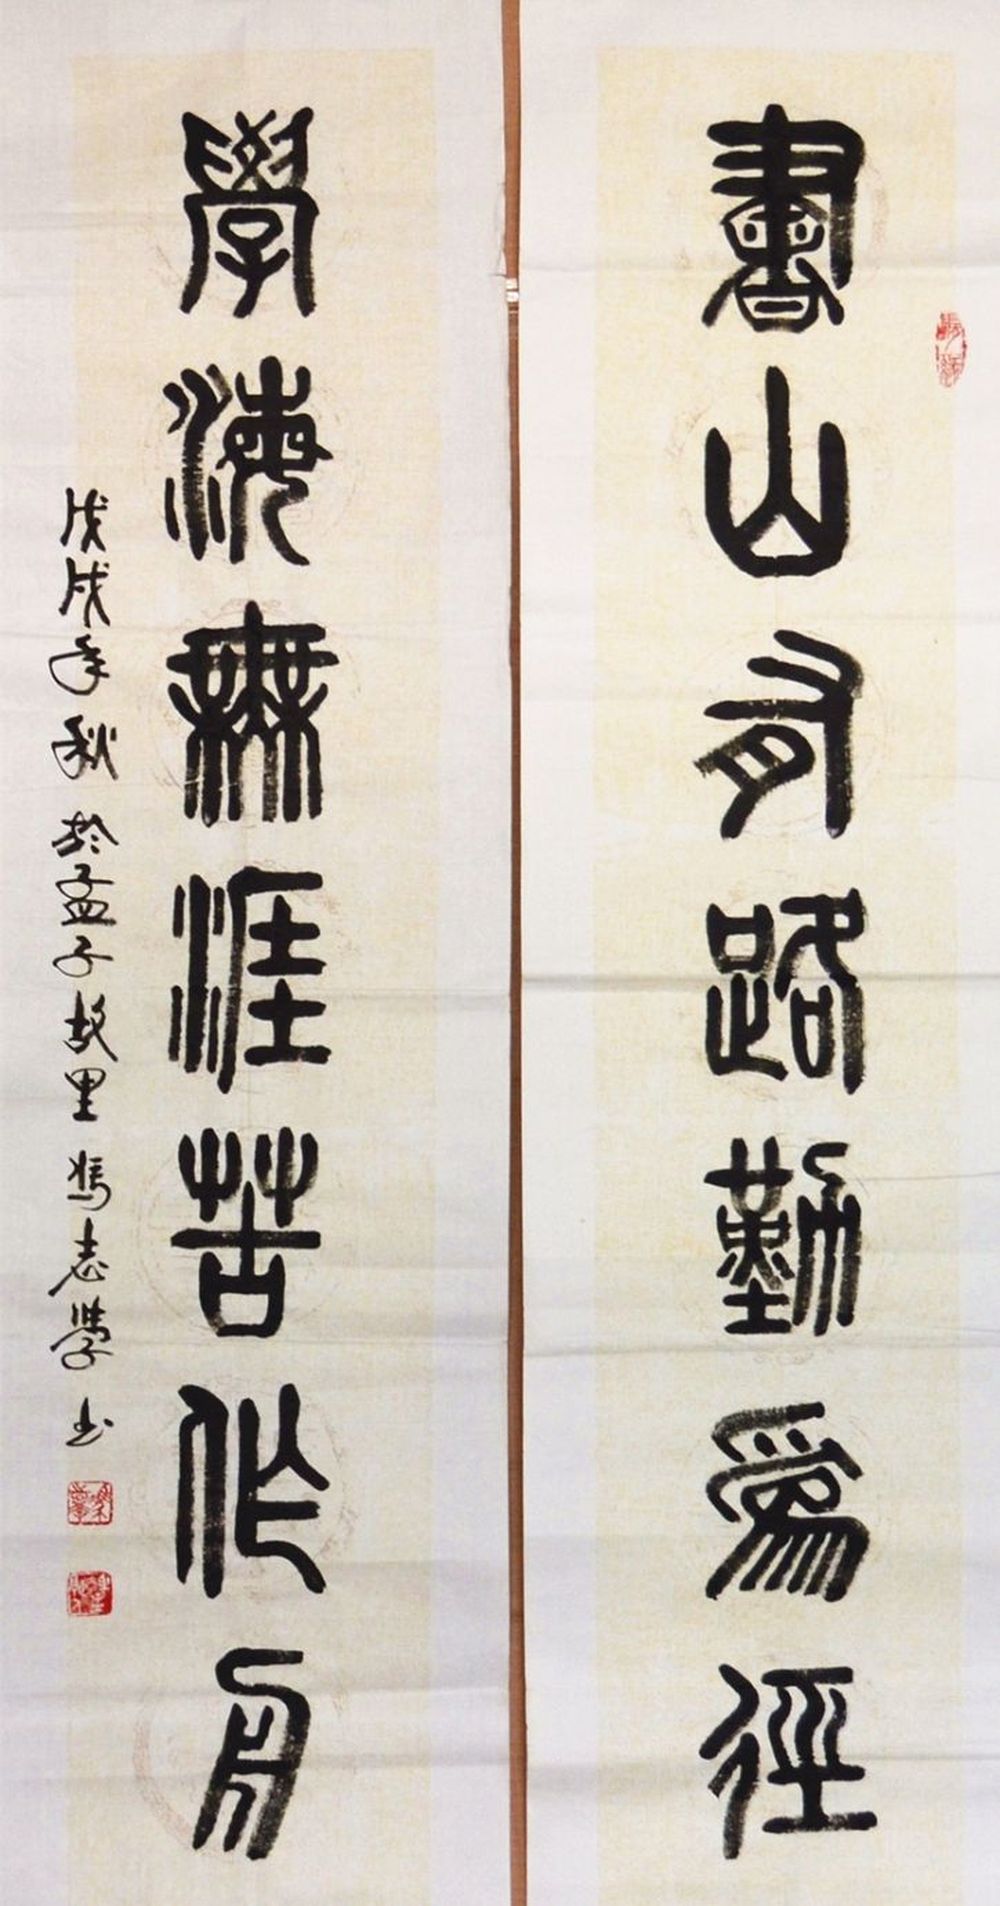 書山有路勤為徑
學海無涯苦作舟
戊戌年秋於孟子故里馮志學书